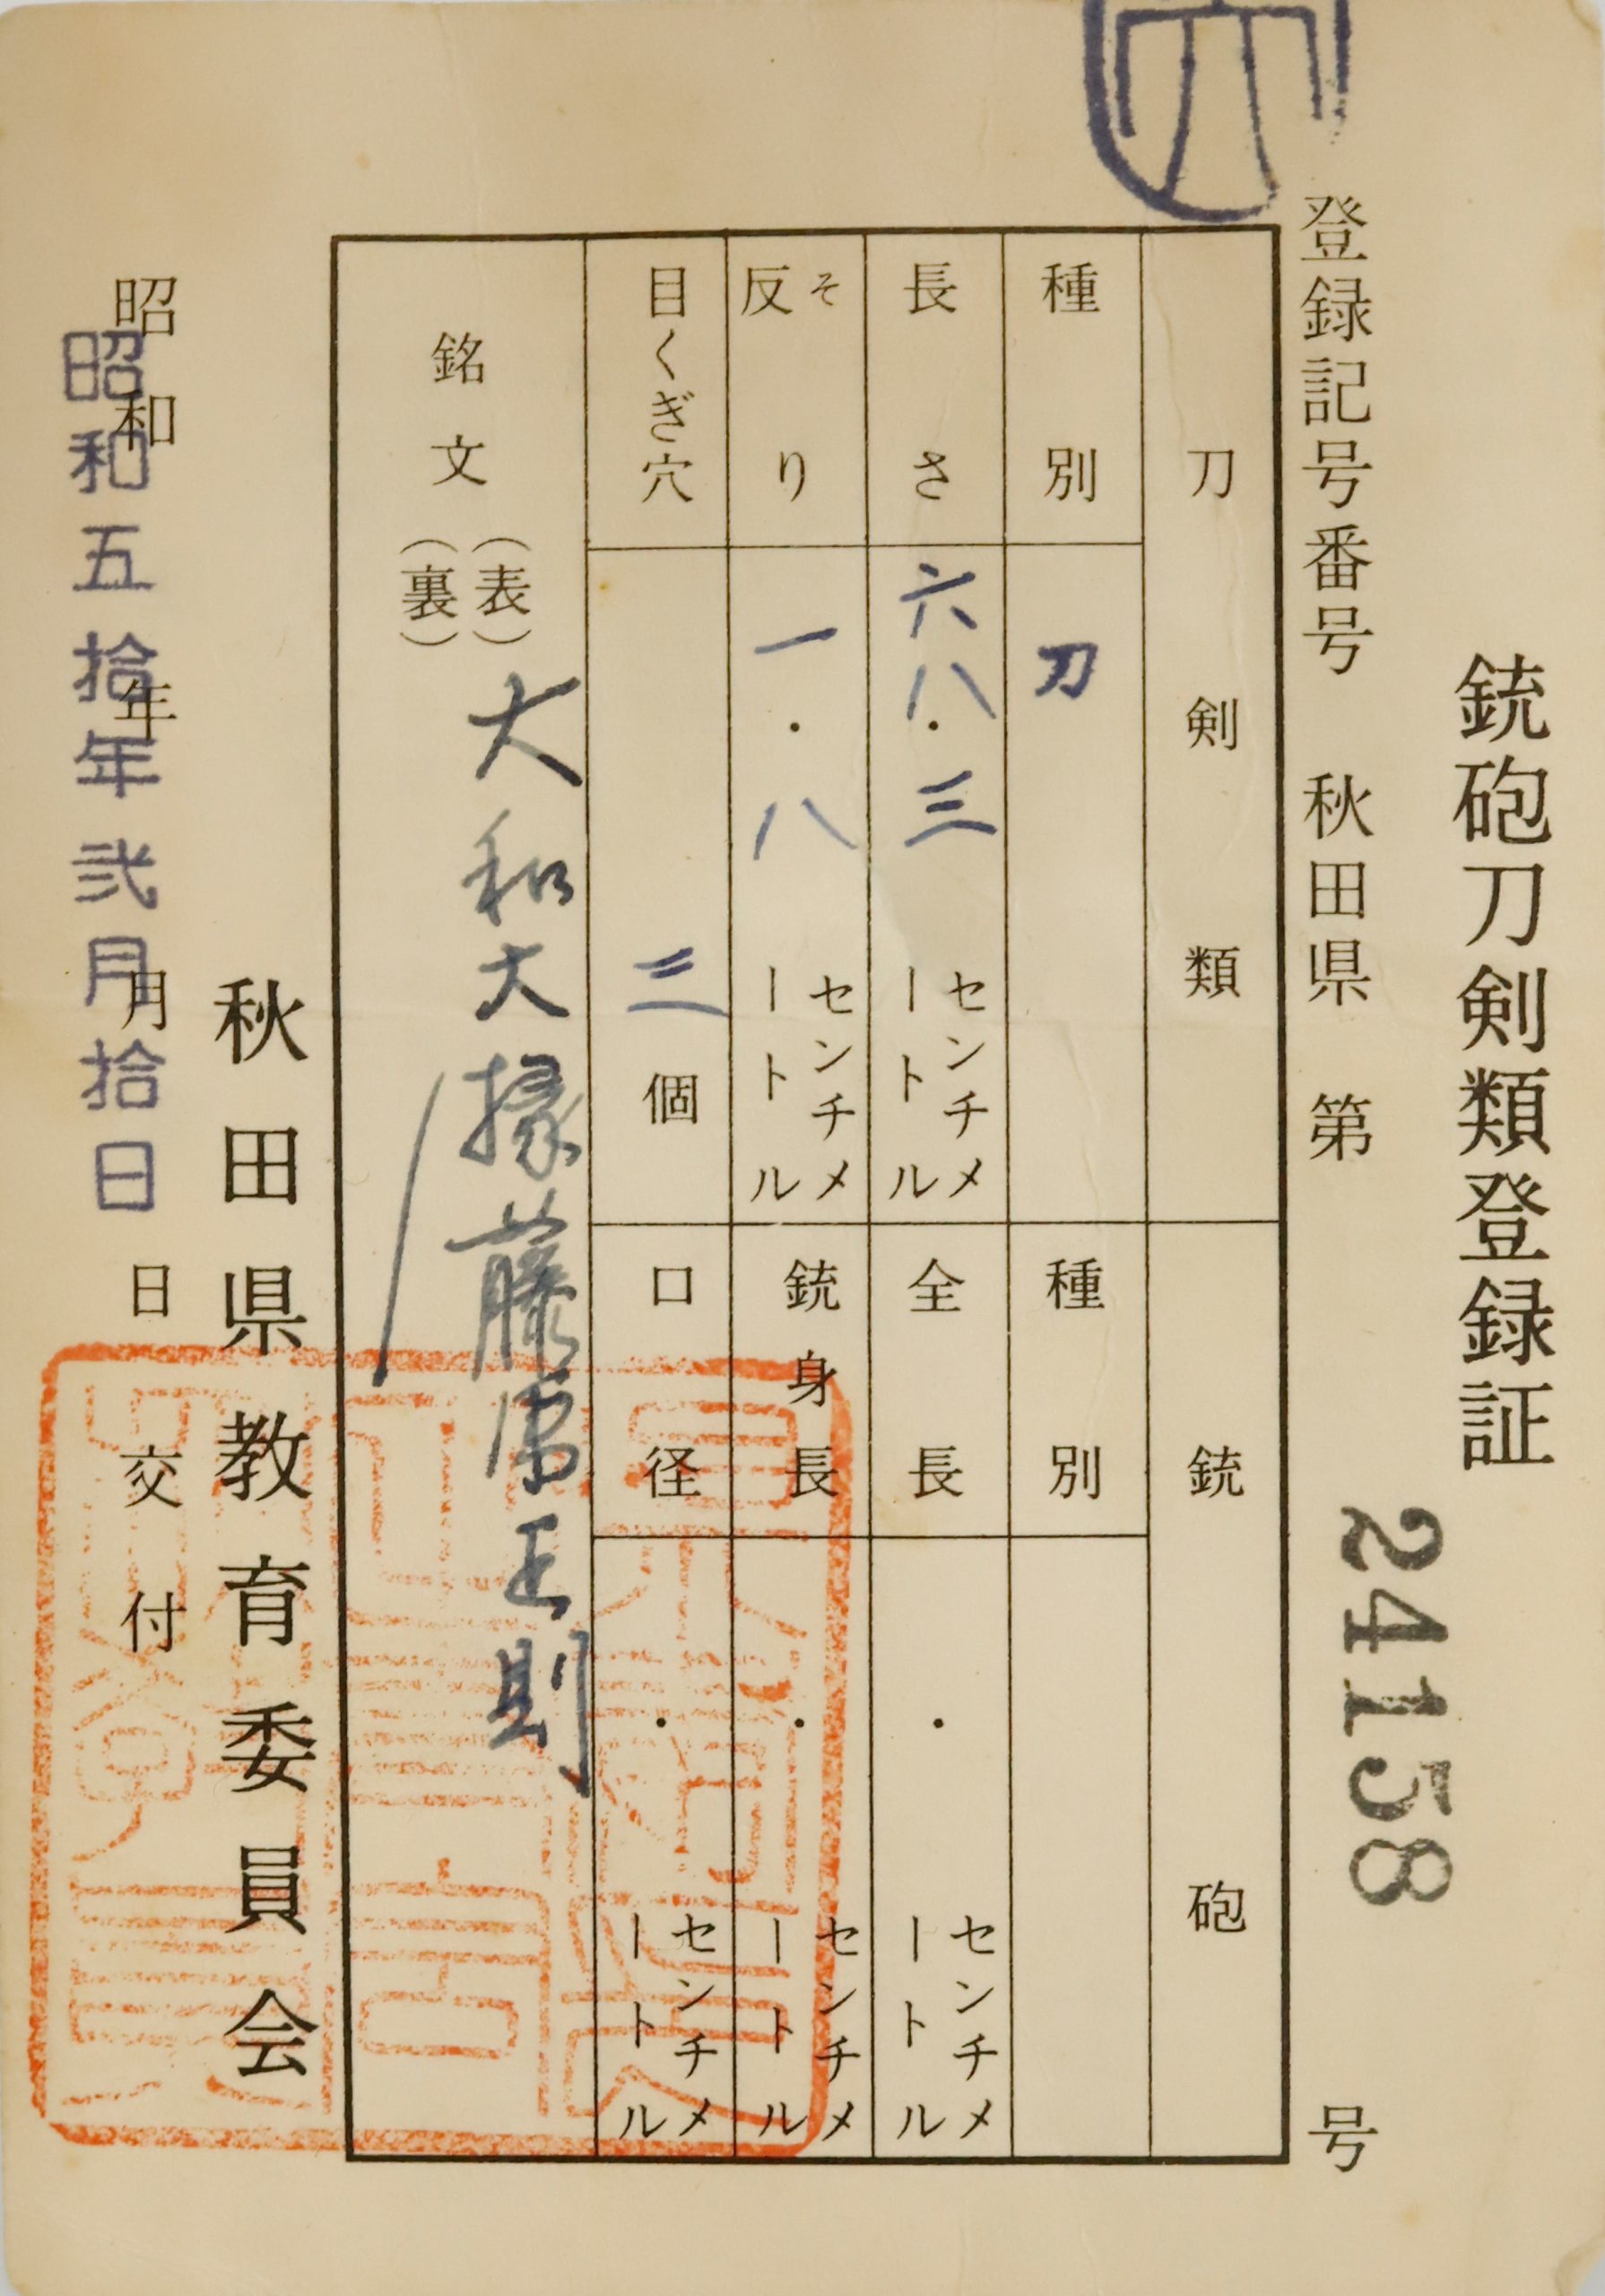 銃砲刀剣類登録証
登録記号番号 秋田県 第 24158 号
刀剣類
種別 刀
長さ 六八.三 センチメートル
反り そ 一.八 センチメートル
目くぎ穴 三 個
銘文 (表) 大和大掾藤原正則
(裏)
銃砲
種別
全長 . センチメートル
銃身長 . センチメートル
口径 . センチメートル
秋田県教育委員会
昭和 年 月 日 交付
昭和五拾年弐月拾日